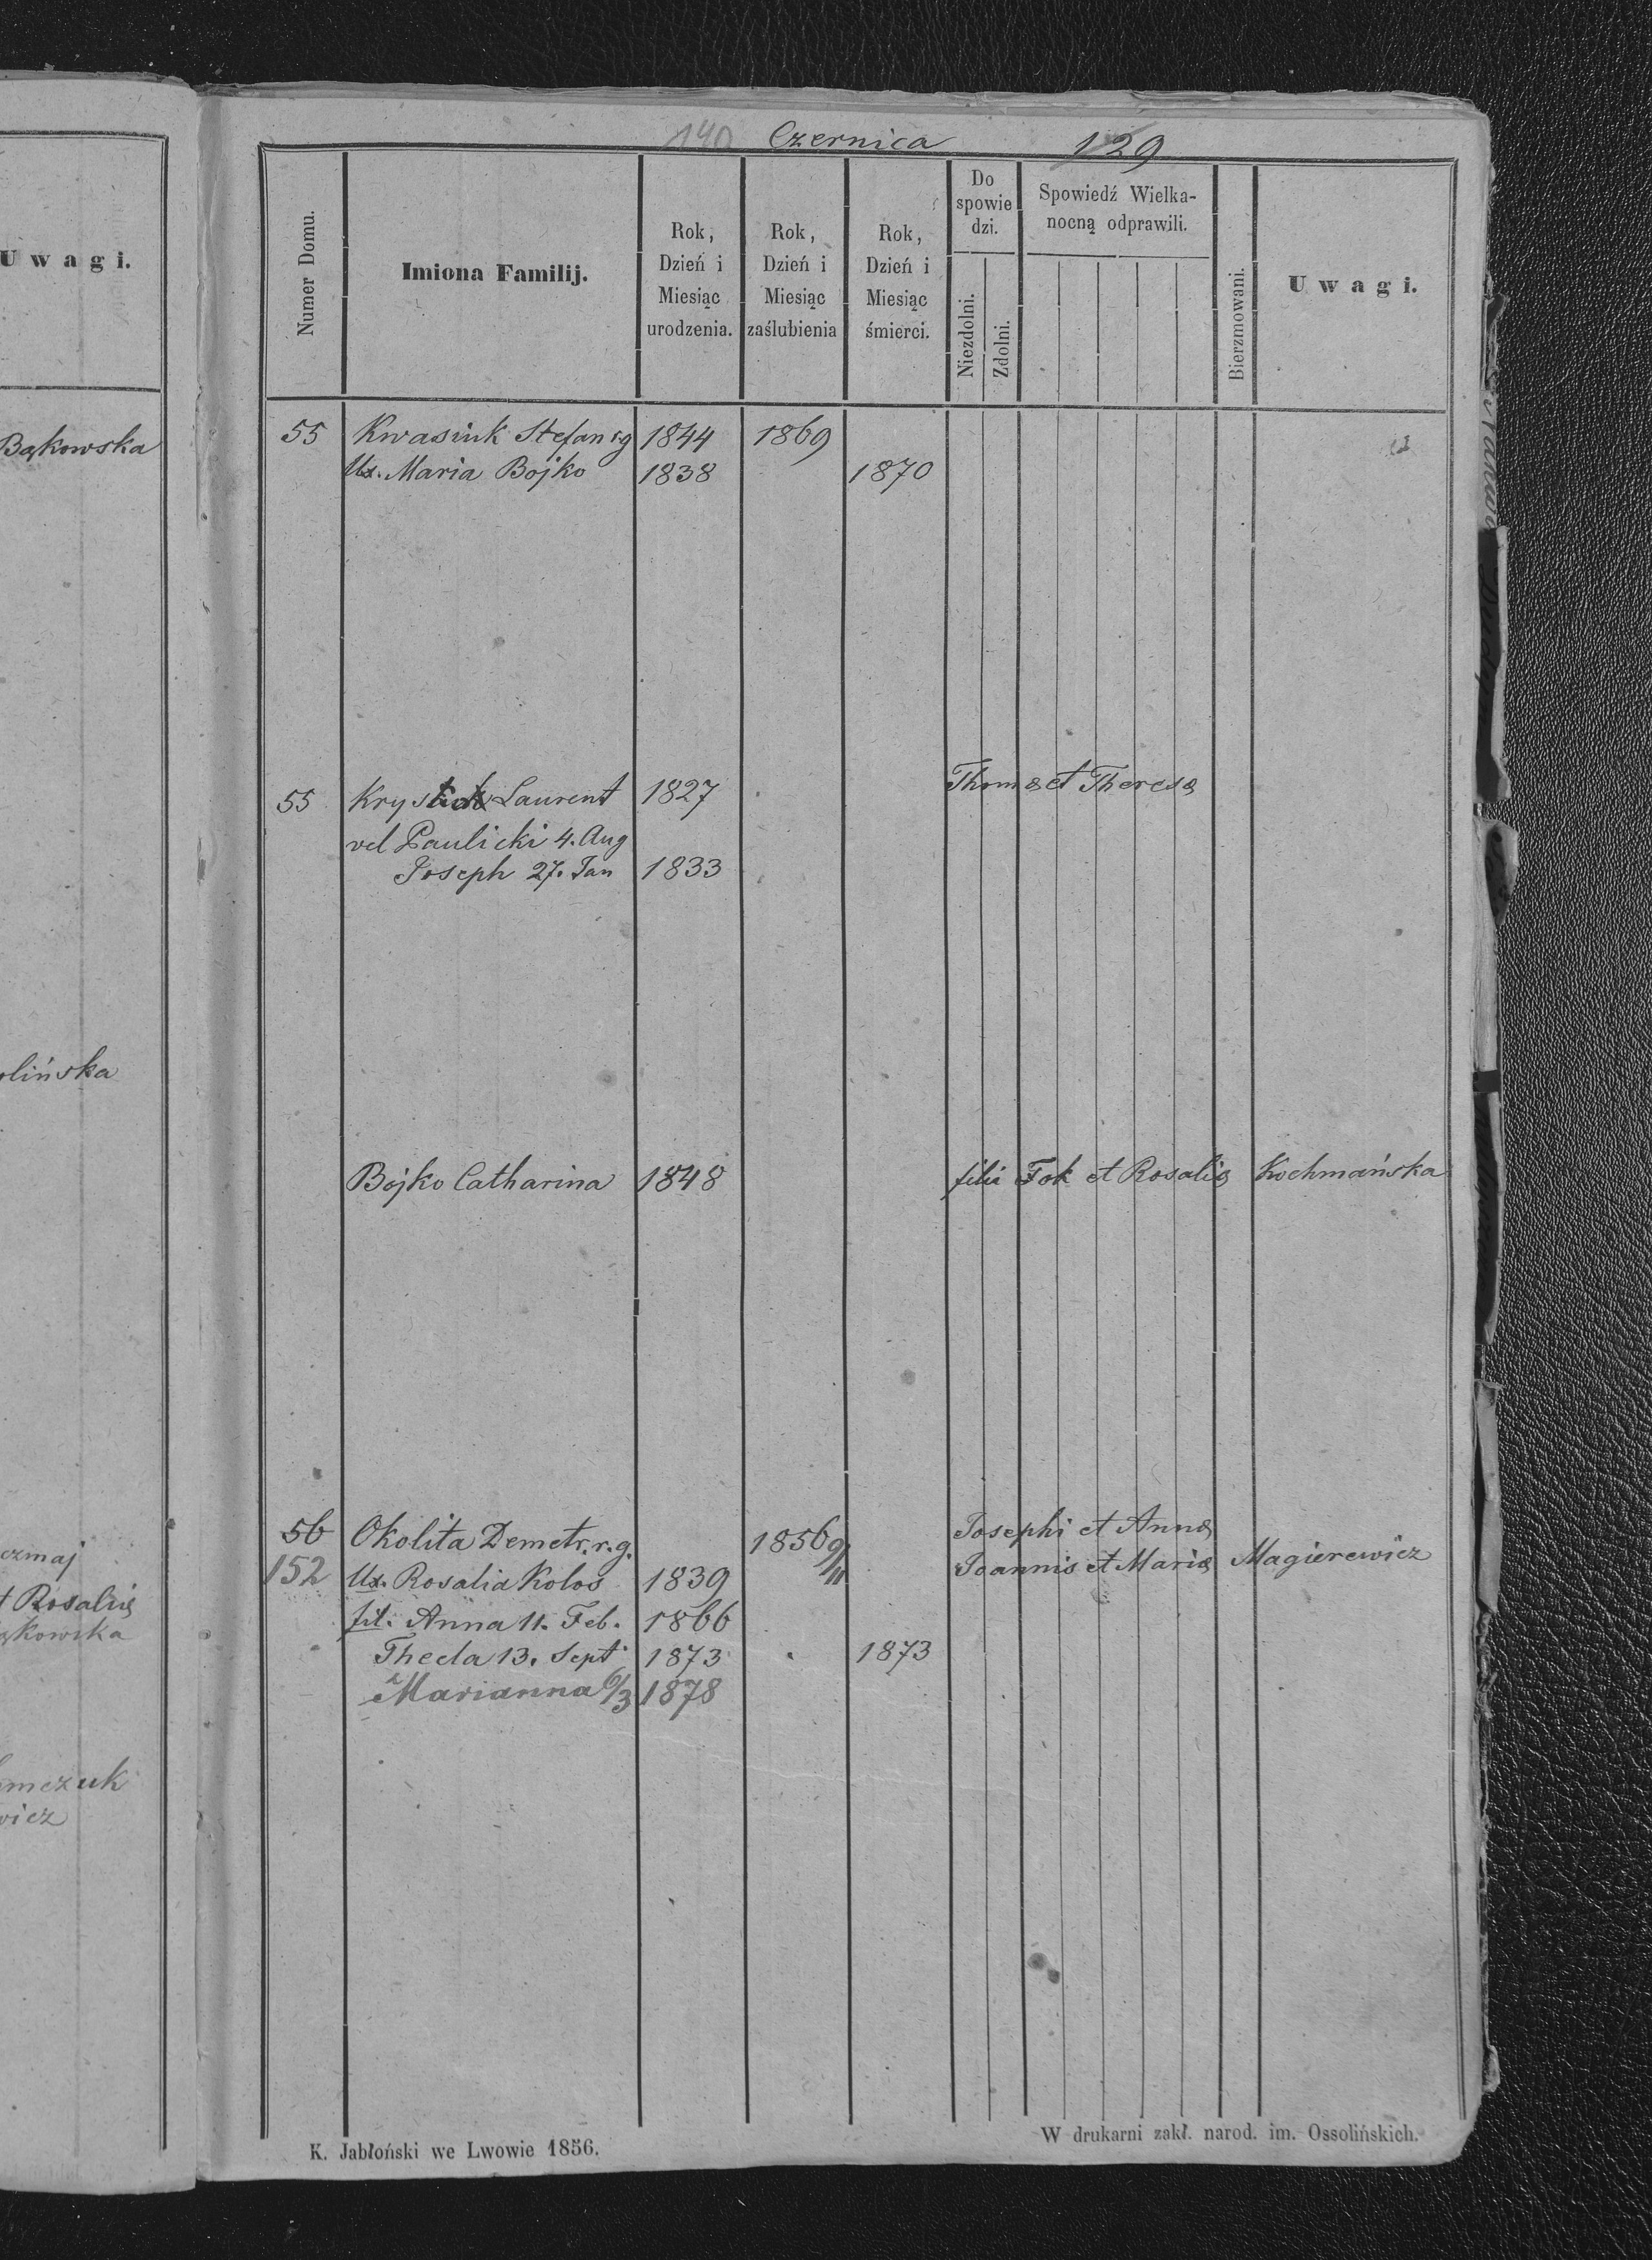 Uwagi.
Bąkowska
lińska
czmaj
t Rosaliæ
ąkowska
mczuk
wicz
140 Czernica 129
Numer Domu.
Imiona Familij.
Rok, Dzień i Miesiąc urodzenia.
Rok, Dzień i Miesiąc zaślubienia
Rok, Dzień i Miesiąc śmierci.
Do spowiedzi.
Niezdolni.
Zdolni.
Spowiedź Wielkanocną odprawili.
Bierzmowani.
Uwagi.
55 Kwasiuk Stefan rg 1844 1869
Ux. Maria Bojko 1838 1870
55 Laurent 1827 Thomæ et Theresæ
vel Paulicki 4. Aug
Joseph 27. Jan 1833
Bojko Catharina 1848 filia Fok et Rosaliæ Kochmańska
56 Okolita Demetr. r.g. 1856 9/11 Josephi et Annæ
152 Ux. Rosalia Kolos 1839 Joannis et Mariæ Magierewicz
fil. Anna 11. Feb. 1866
Thecla 13. Sept 1873 1873
Marianna 6/3 1878
K. Jabłoński we Lwowie 1856.
W drukarni zakł. narod. im. Ossolińskich.